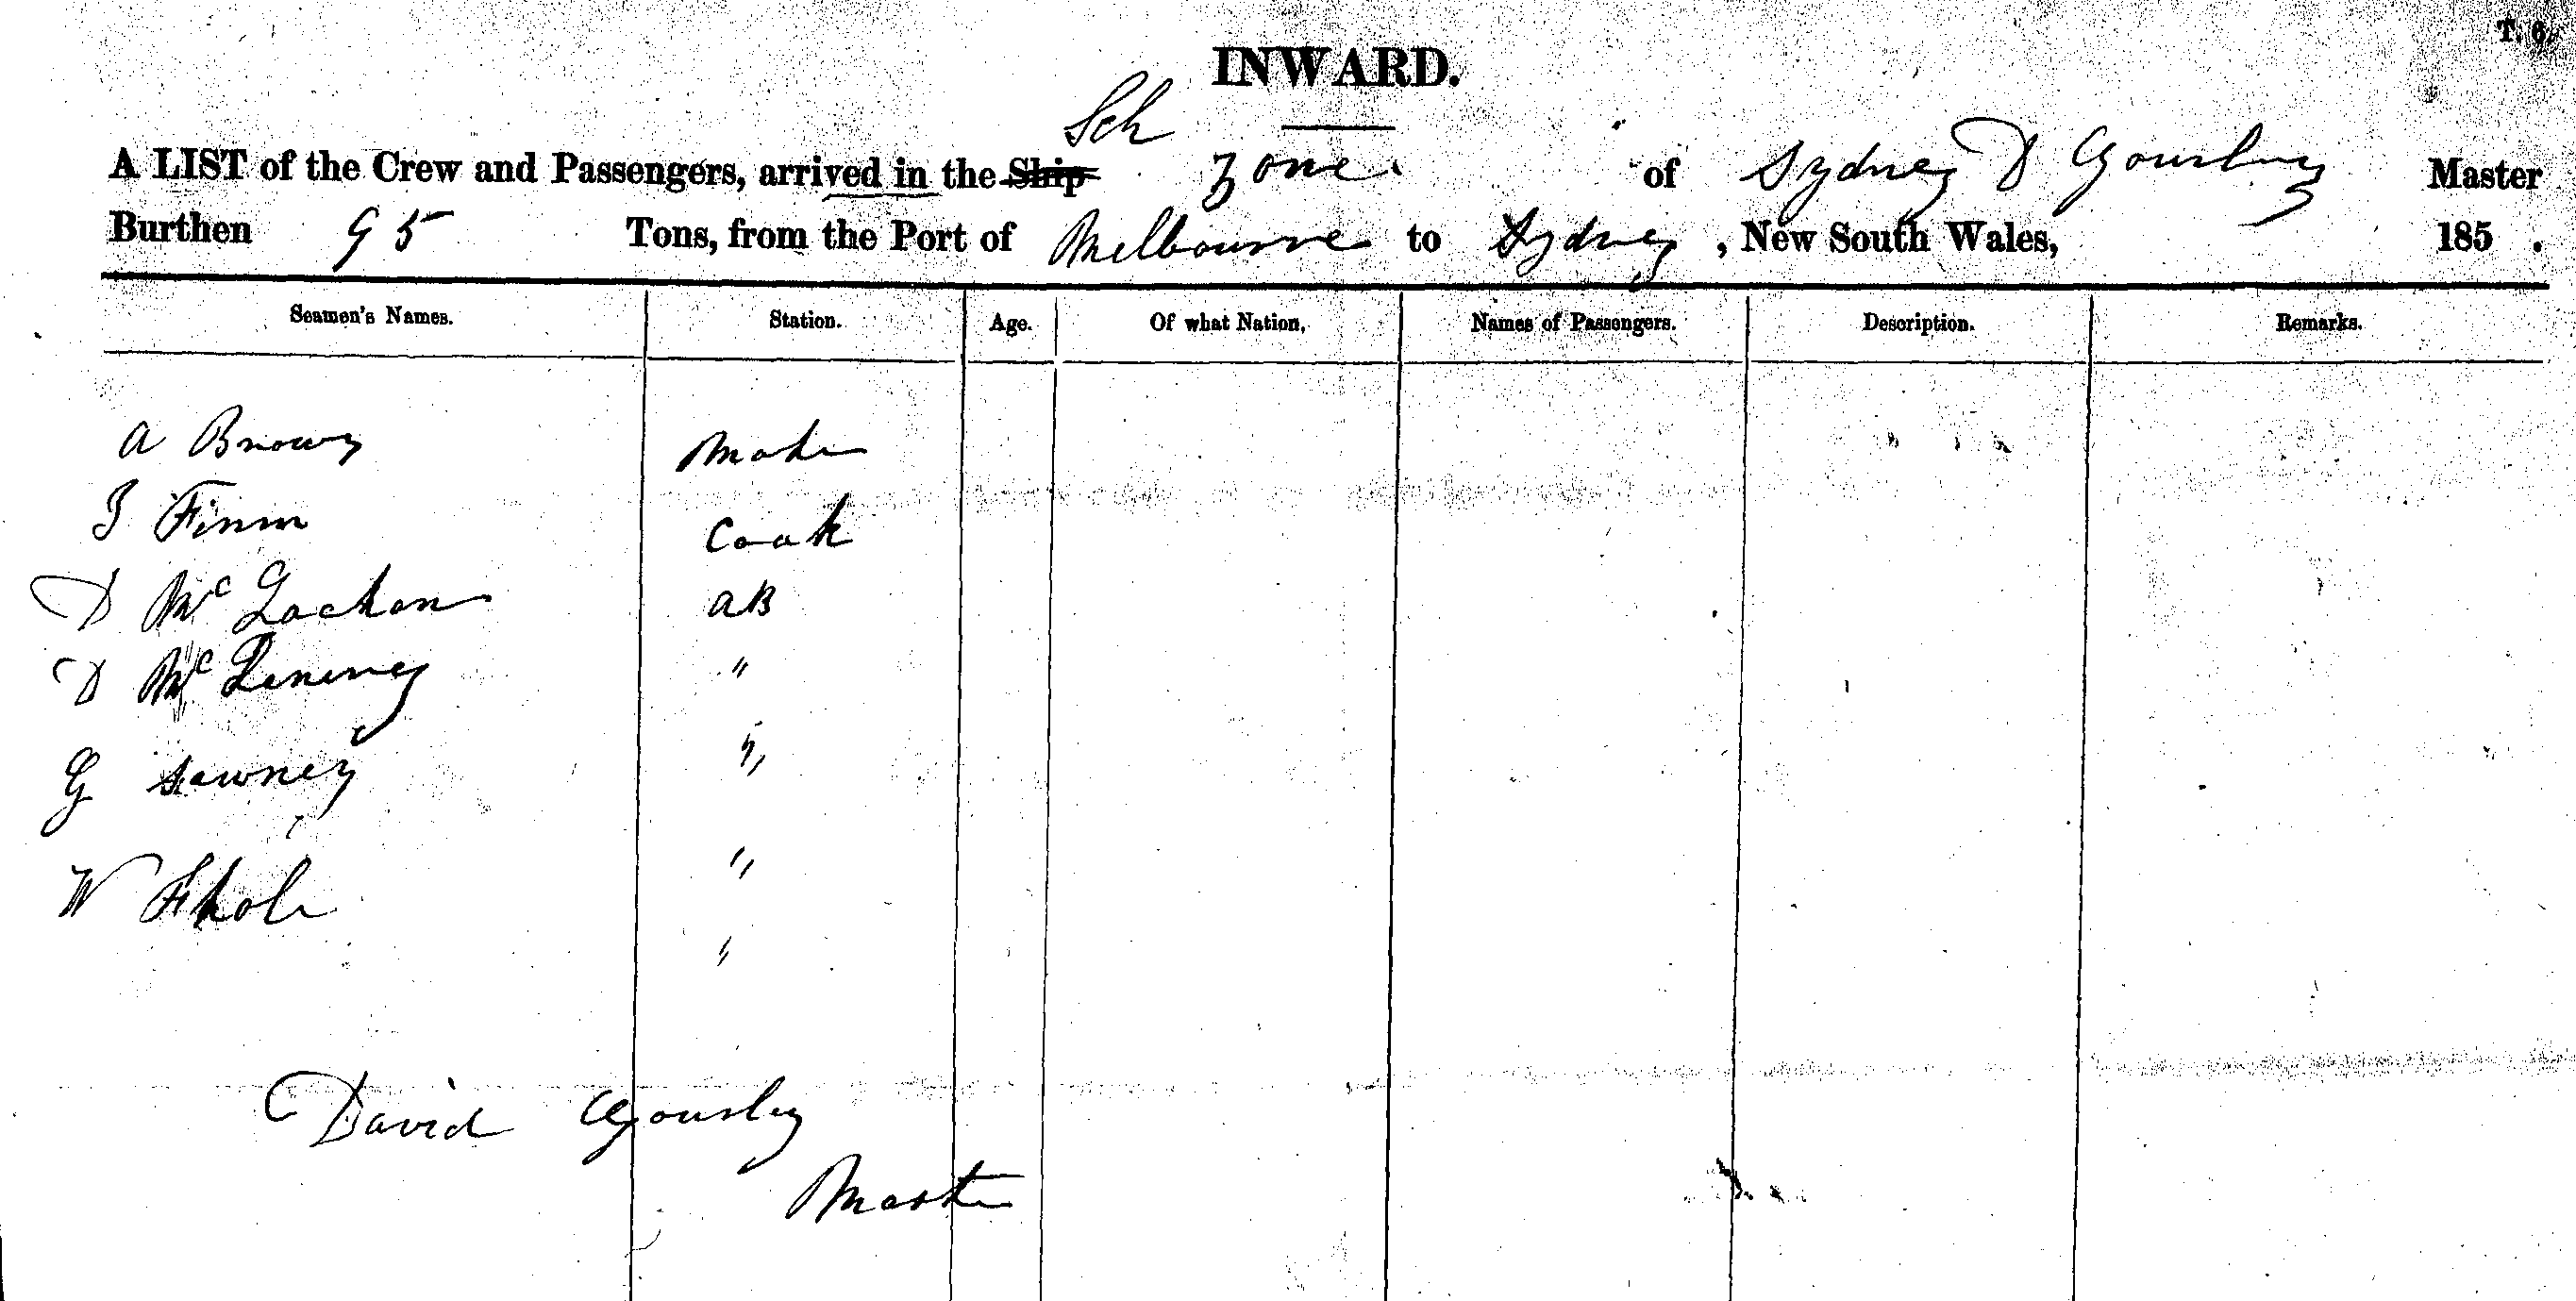 T. 6.
INWARD.
Sch
A LIST of the Crew and Passengers, arrived in the Ship Zone. of Sydney D Goursley Master
Burthen 95 Tons, from the Port of Melbourne to Sydney, New South Wales, 185 .
Seamen's Names. Station. Age. Of what Nation, Names of Passengers. Description. Remarks.
A Brown Mate
J Finm Cook
D Mc Lachan AB
D Mc "
G Sawney "
W "
"
David Goursley
Master